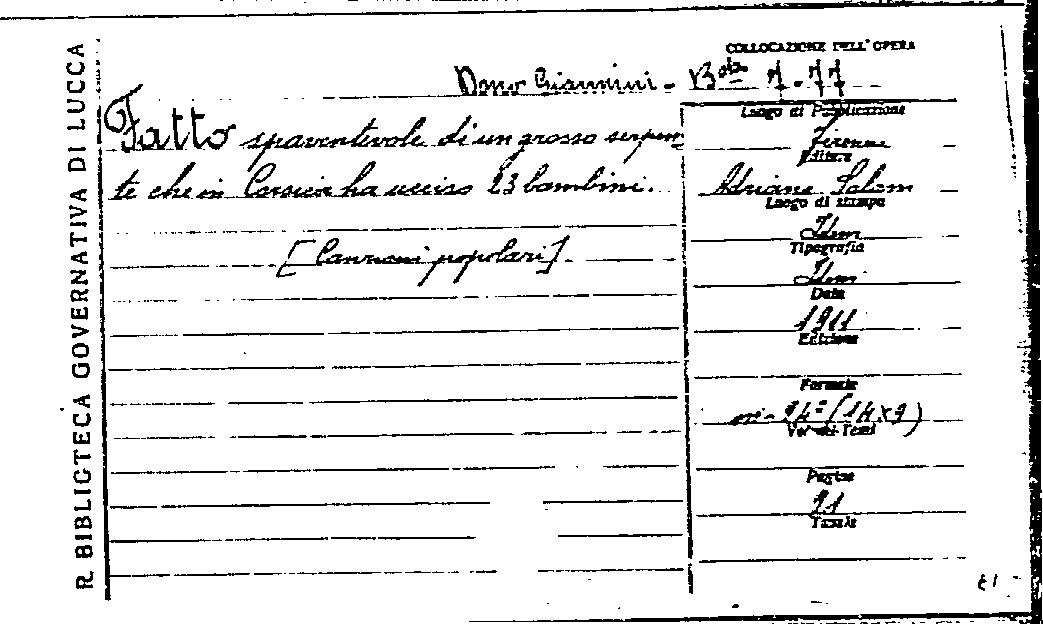 R. BIBLIOTECA GOVERNATIVA DI LUCCA
COLLOCAZIONE DELL'OPERA
Dono Giannini - B.ta 7-77
Fatto spaventevole di un grosso serpen-
te che in Corsica ha ucciso 23 bambini.
[Canzoni popolari]
Luogo di Pubblicazione
Firenze
Editore
Adriano Salani
Luogo di stampa
Idem
Tipografia
Idem
Data
1911
Edizione
Formato
in-24° (14x9)
Volumi-Tomi
Pagine
Tavole